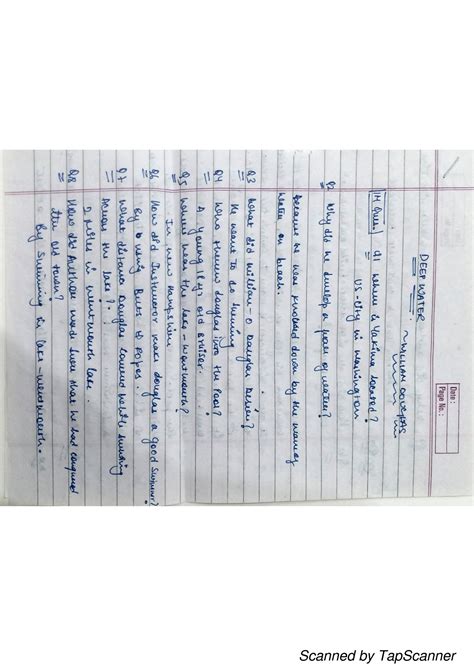 Date :
Page No. :
DEEP WATER
~ WILLIAM DOUGLAS
1M Ques
Q1 where is Yakima located?
US-city in washington
Q2 Why did he develop a fear of water?
because he was knocked down by the waves
water on beach.
Q3 What did William-o Douglas
He want to do
Q4 Who threw douglas into the Pool?
A young 18 yr old
Q5 where was the lake - wentworth?
In new hampshire
Q6 How did Instructor make douglas a good swimmer?
By using
Q7 What distance Douglas covered while
across the lake?
2 miles in wentworth lake.
Q8 How did Author make sure that he had conquered
the old
By swimming in lake - wentworth.
Scanned by TapScanner